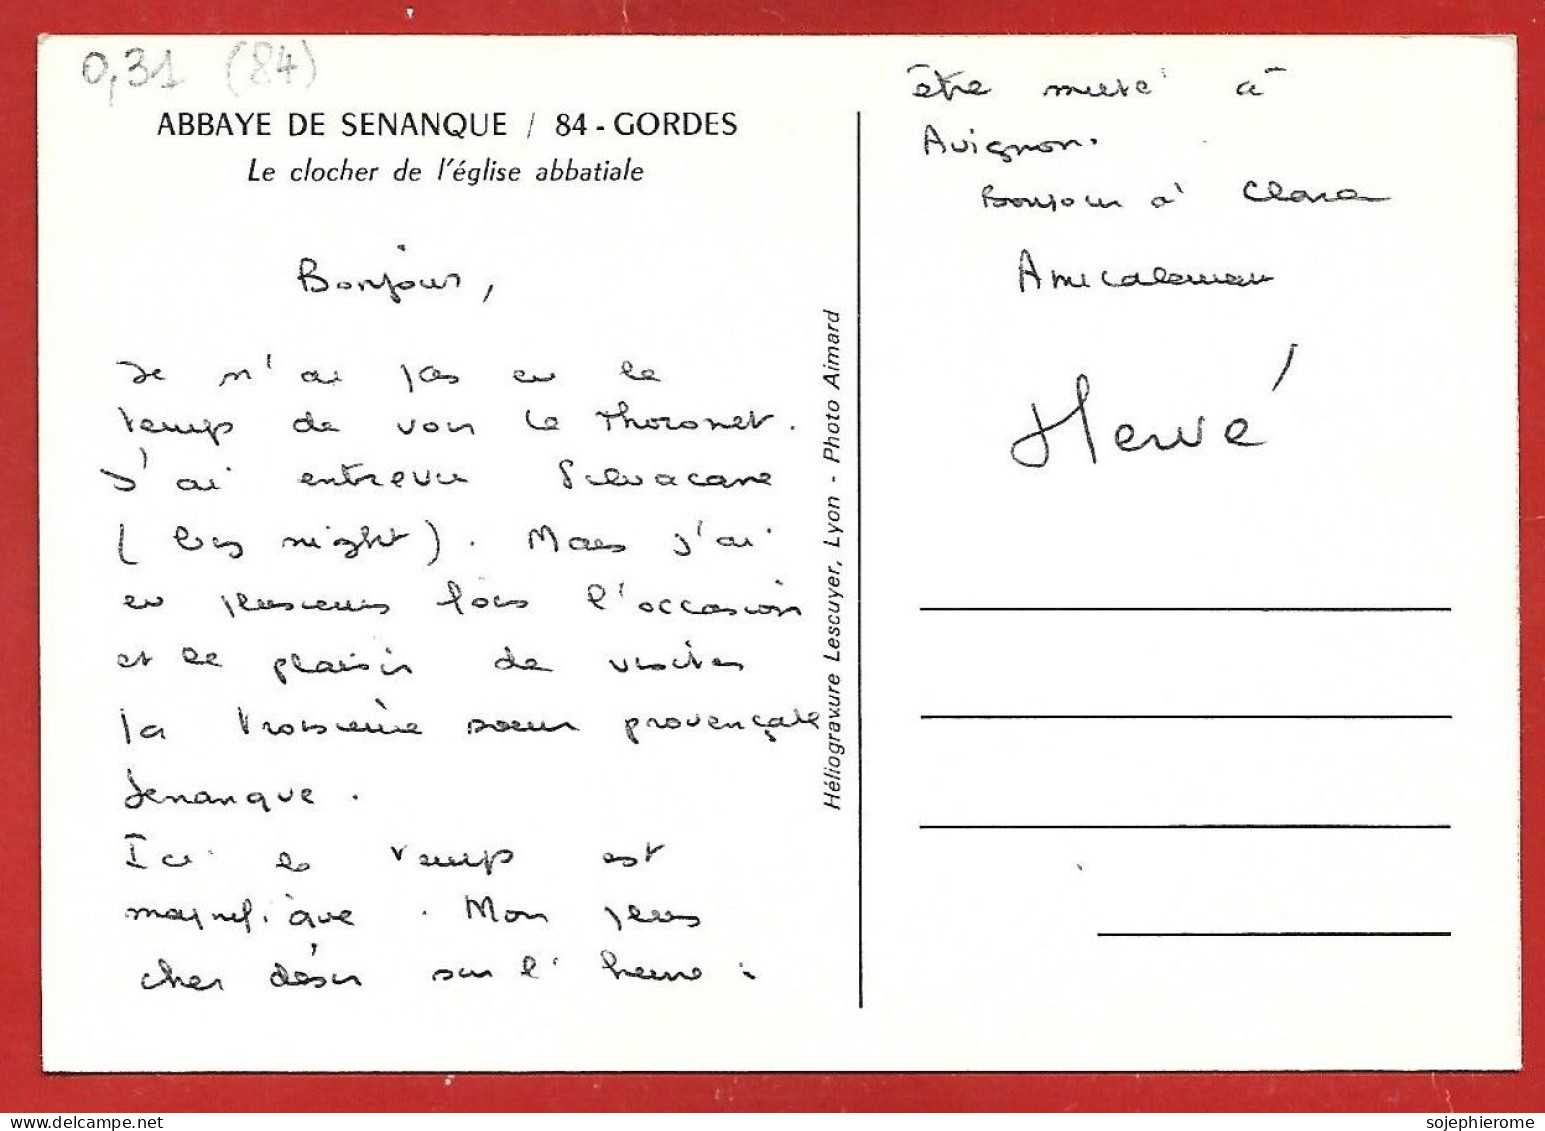 0,31 (84)
ABBAYE DE SENANQUE / 84 - GORDES
Le clocher de l'église abbatiale
Bonjour,
Je n'ai pas eu le
temps de voir le Thoronet.
J'ai entrevu Silvacane
( by night ). Mais j'ai
eu plusieurs fois l'occasion
et le plaisir de visiter
la troisième soeur provençale
Senanque.
Ici le temps est
magnifique. Mon plus
cher désir sur l'heure :
être muté à
Avignon.
Bonjour à Clara
Amicalement
Hervé
Héliogravure Lescuyer, Lyon - Photo Aimard
sojephierome